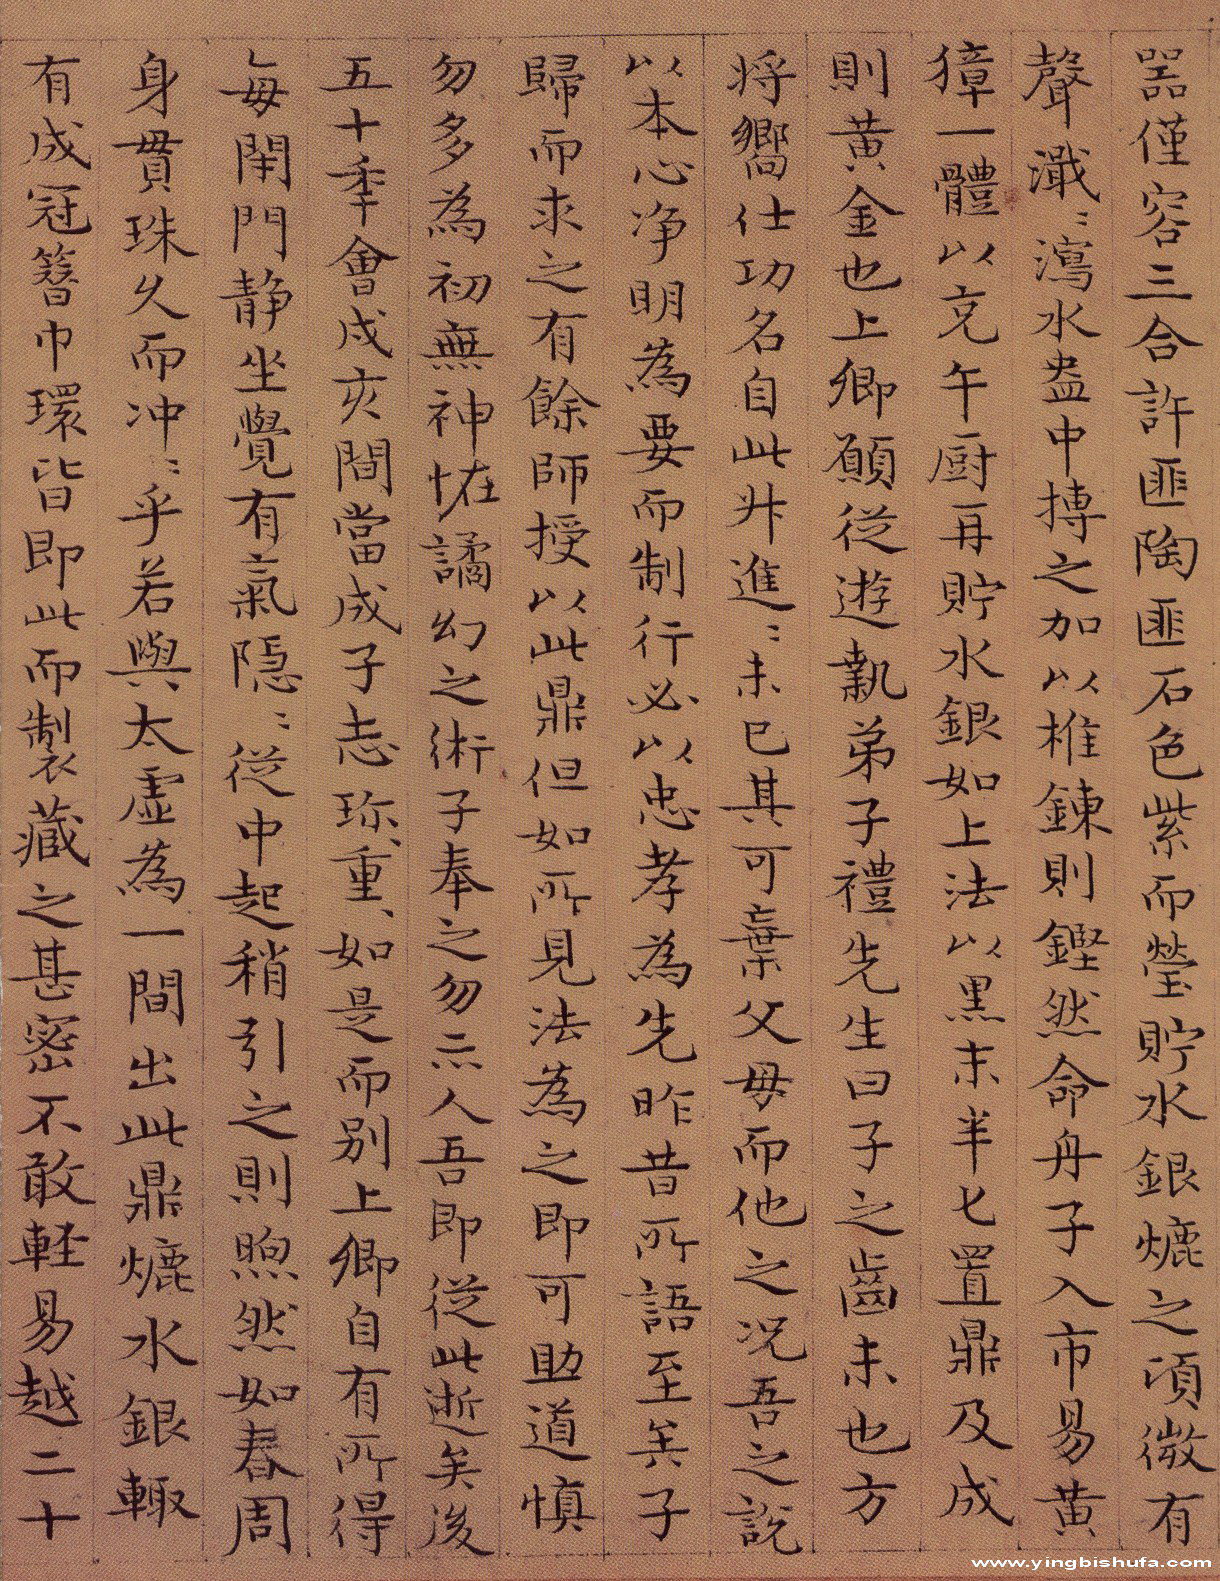 器僅容三合許匪陶匪石色紫而瑩貯水銀熝之頃微有
聲濈〻瀉水盎中摶之加以椎鍊則鏗然命舟子入市易黃
獐一體以充午厨再貯水銀如上法以黑末半匕置鼎及成
則黃金也上卿願從遊執弟子禮先生曰子之齒未也方
將嚮仕功名自此升進〻未已其可棄父母而他之況吾之說
以本心净明為要而制行必以忠孝為先昨昔所語至矣子
歸而求之有餘師授以此鼎但如所見法為之即可助道慎
勿多為初無神恠譎幻之術子奉之勿示人吾即從此逝矣後
五十季會戍亥間當成子志珎重如是而別上卿自有所得
每閈門静坐覺有氣隱〻從中起稍引之則煦然如春周
身貫珠久而冲〻乎若與太虛為一間出此鼎熝水銀輙
有成冠簪巾環皆即此而製藏之甚密不敢輕易越二十
www.yingbishufa.com